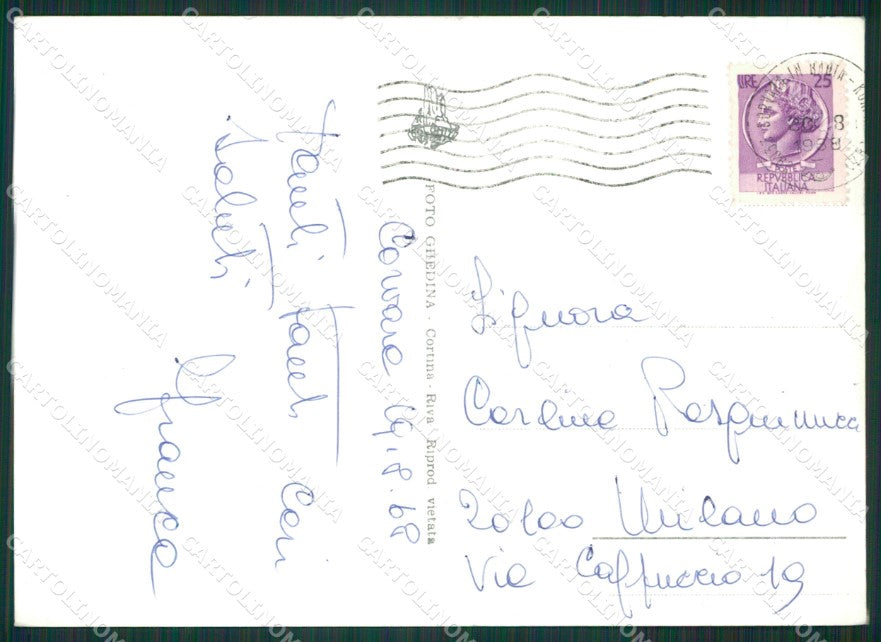 Corvara 19.8.68
tanti tanti cari
saluti
Franca
FOTO GHEDINA - Cortina - Riva Riprod vietata
LIRE 25
REPVBBLICA
ITALIANA
Signora
20100 Milano
Via 19
CARTOLINOMANIA